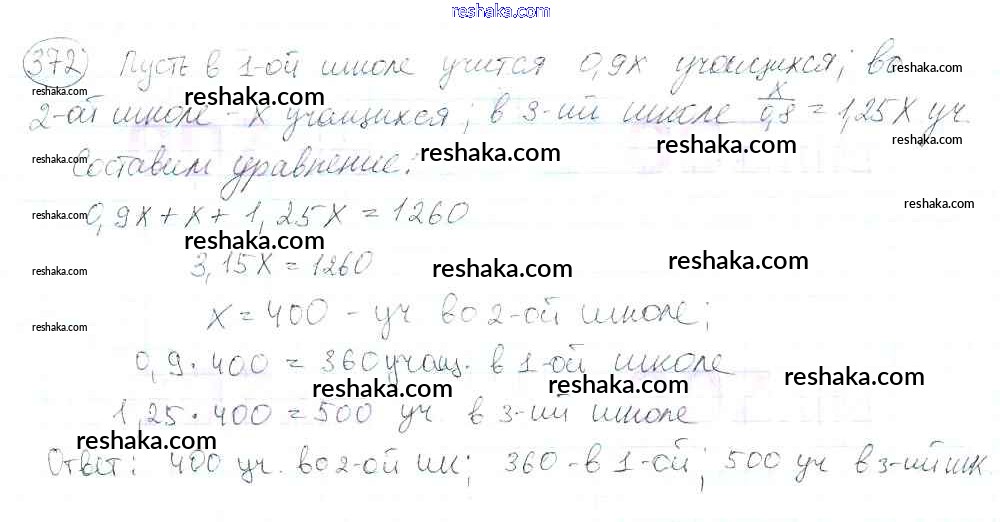 reshaka.com
372) Пусть в 1-ой школе учится 0,9x учащихся; во
reshaka.com
reshaka.com
reshaka.com
2-ой школе - x учащихся; в 3-ий школе x/0,8 = 1,25x уч.
reshaka.com
reshaka.com
reshaka.com
reshaka.com
Составим уравнение:
reshaka.com
reshaka.com
0,9x + x + 1,25x = 1260
reshaka.com
reshaka.com
3,15x = 1260
reshaka.com
reshaka.com
reshaka.com
x = 400 - уч во 2-ой школе;
reshaka.com
0,9 · 400 = 360 учащ. в 1-ой школе
reshaka.com
reshaka.com
reshaka.com
1,25 · 400 = 500 уч. в 3-ий школе
reshaka.com
Ответ: 400 уч. во 2-ой шк; 360 - в 1-ой; 500 уч в 3-ий шк